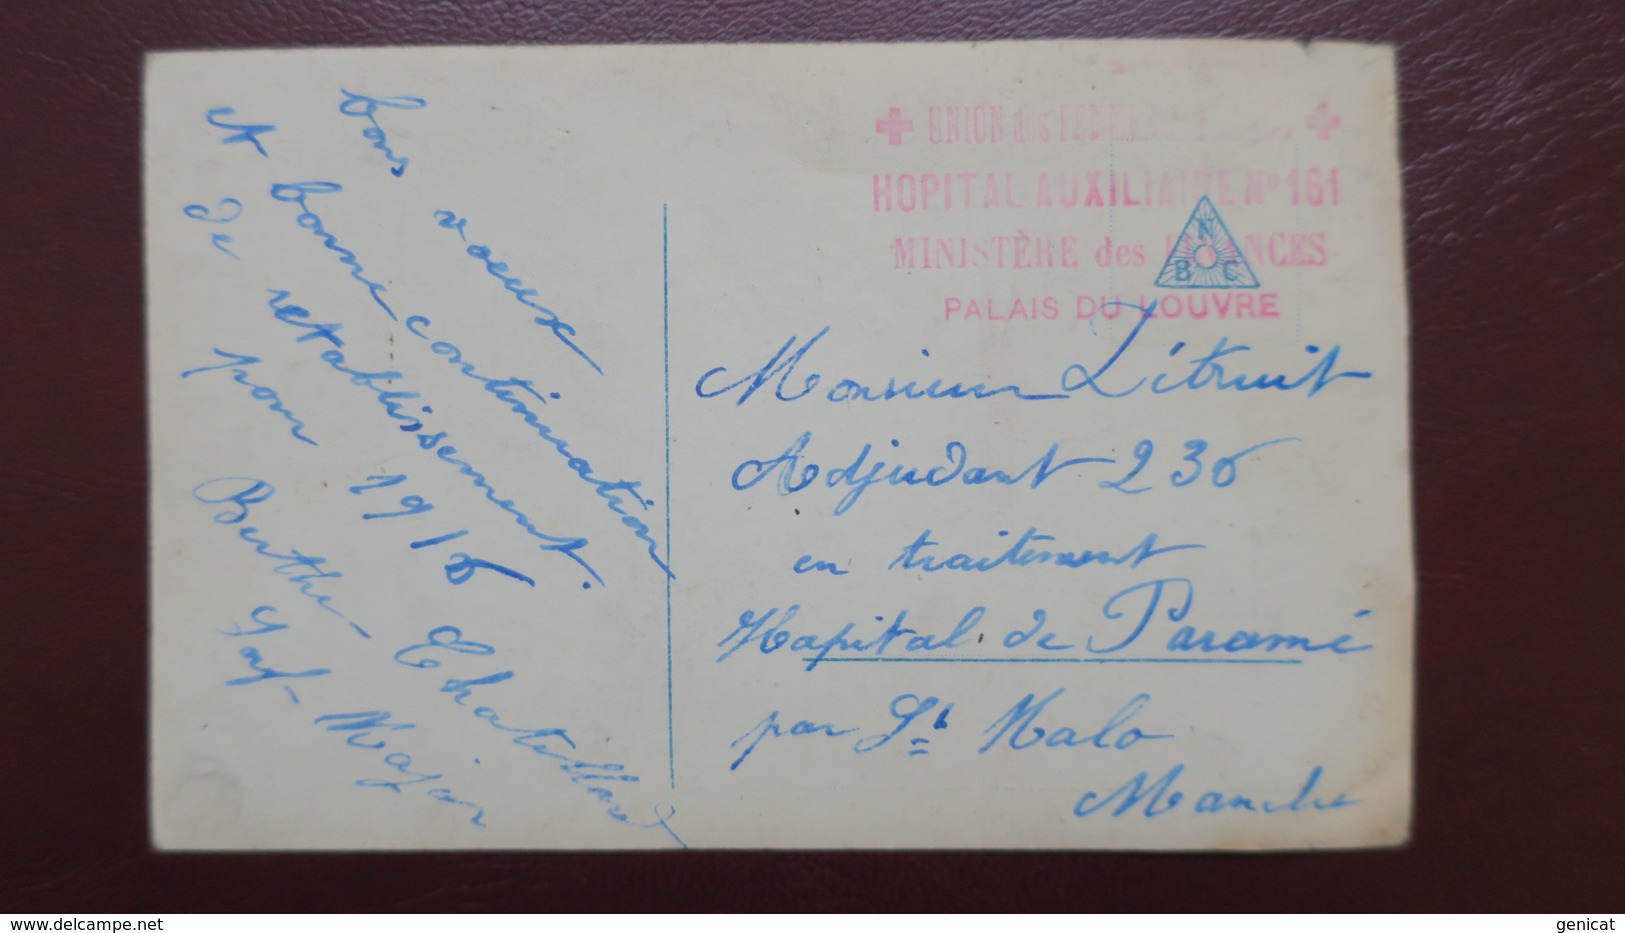 bons voeux
et bonne continuation
de retablissement.
pour 1916
Berthe Chatillard
Inf- Major
UNION des FEMMES
HOPITAL AUXILIAIRE N° 161
MINISTÈRE des FINANCES
PALAIS DU LOUVRE
N
B C
Monsieur Létruit
Adjudant 236
en traitement
Hopital de Paramé
par St Malo
Manche
delcampe.net
genicat